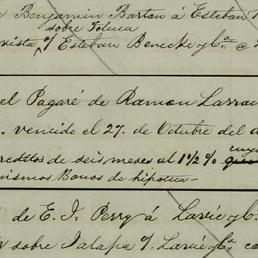 Benjamin Barton á Esteban
sobre Toluca
vista %, Esteban Benecke y Ca. @
el Pagaré de Ramon Larra
vencido el 27. de Octubre del a
creditos de seis meses al 1 1/2 % que
cuy
mismos Bonos de hipoteca —
de E. J. Perry á Lavié y Ca.
sobre Jalapa %, Lavié y Ca. co